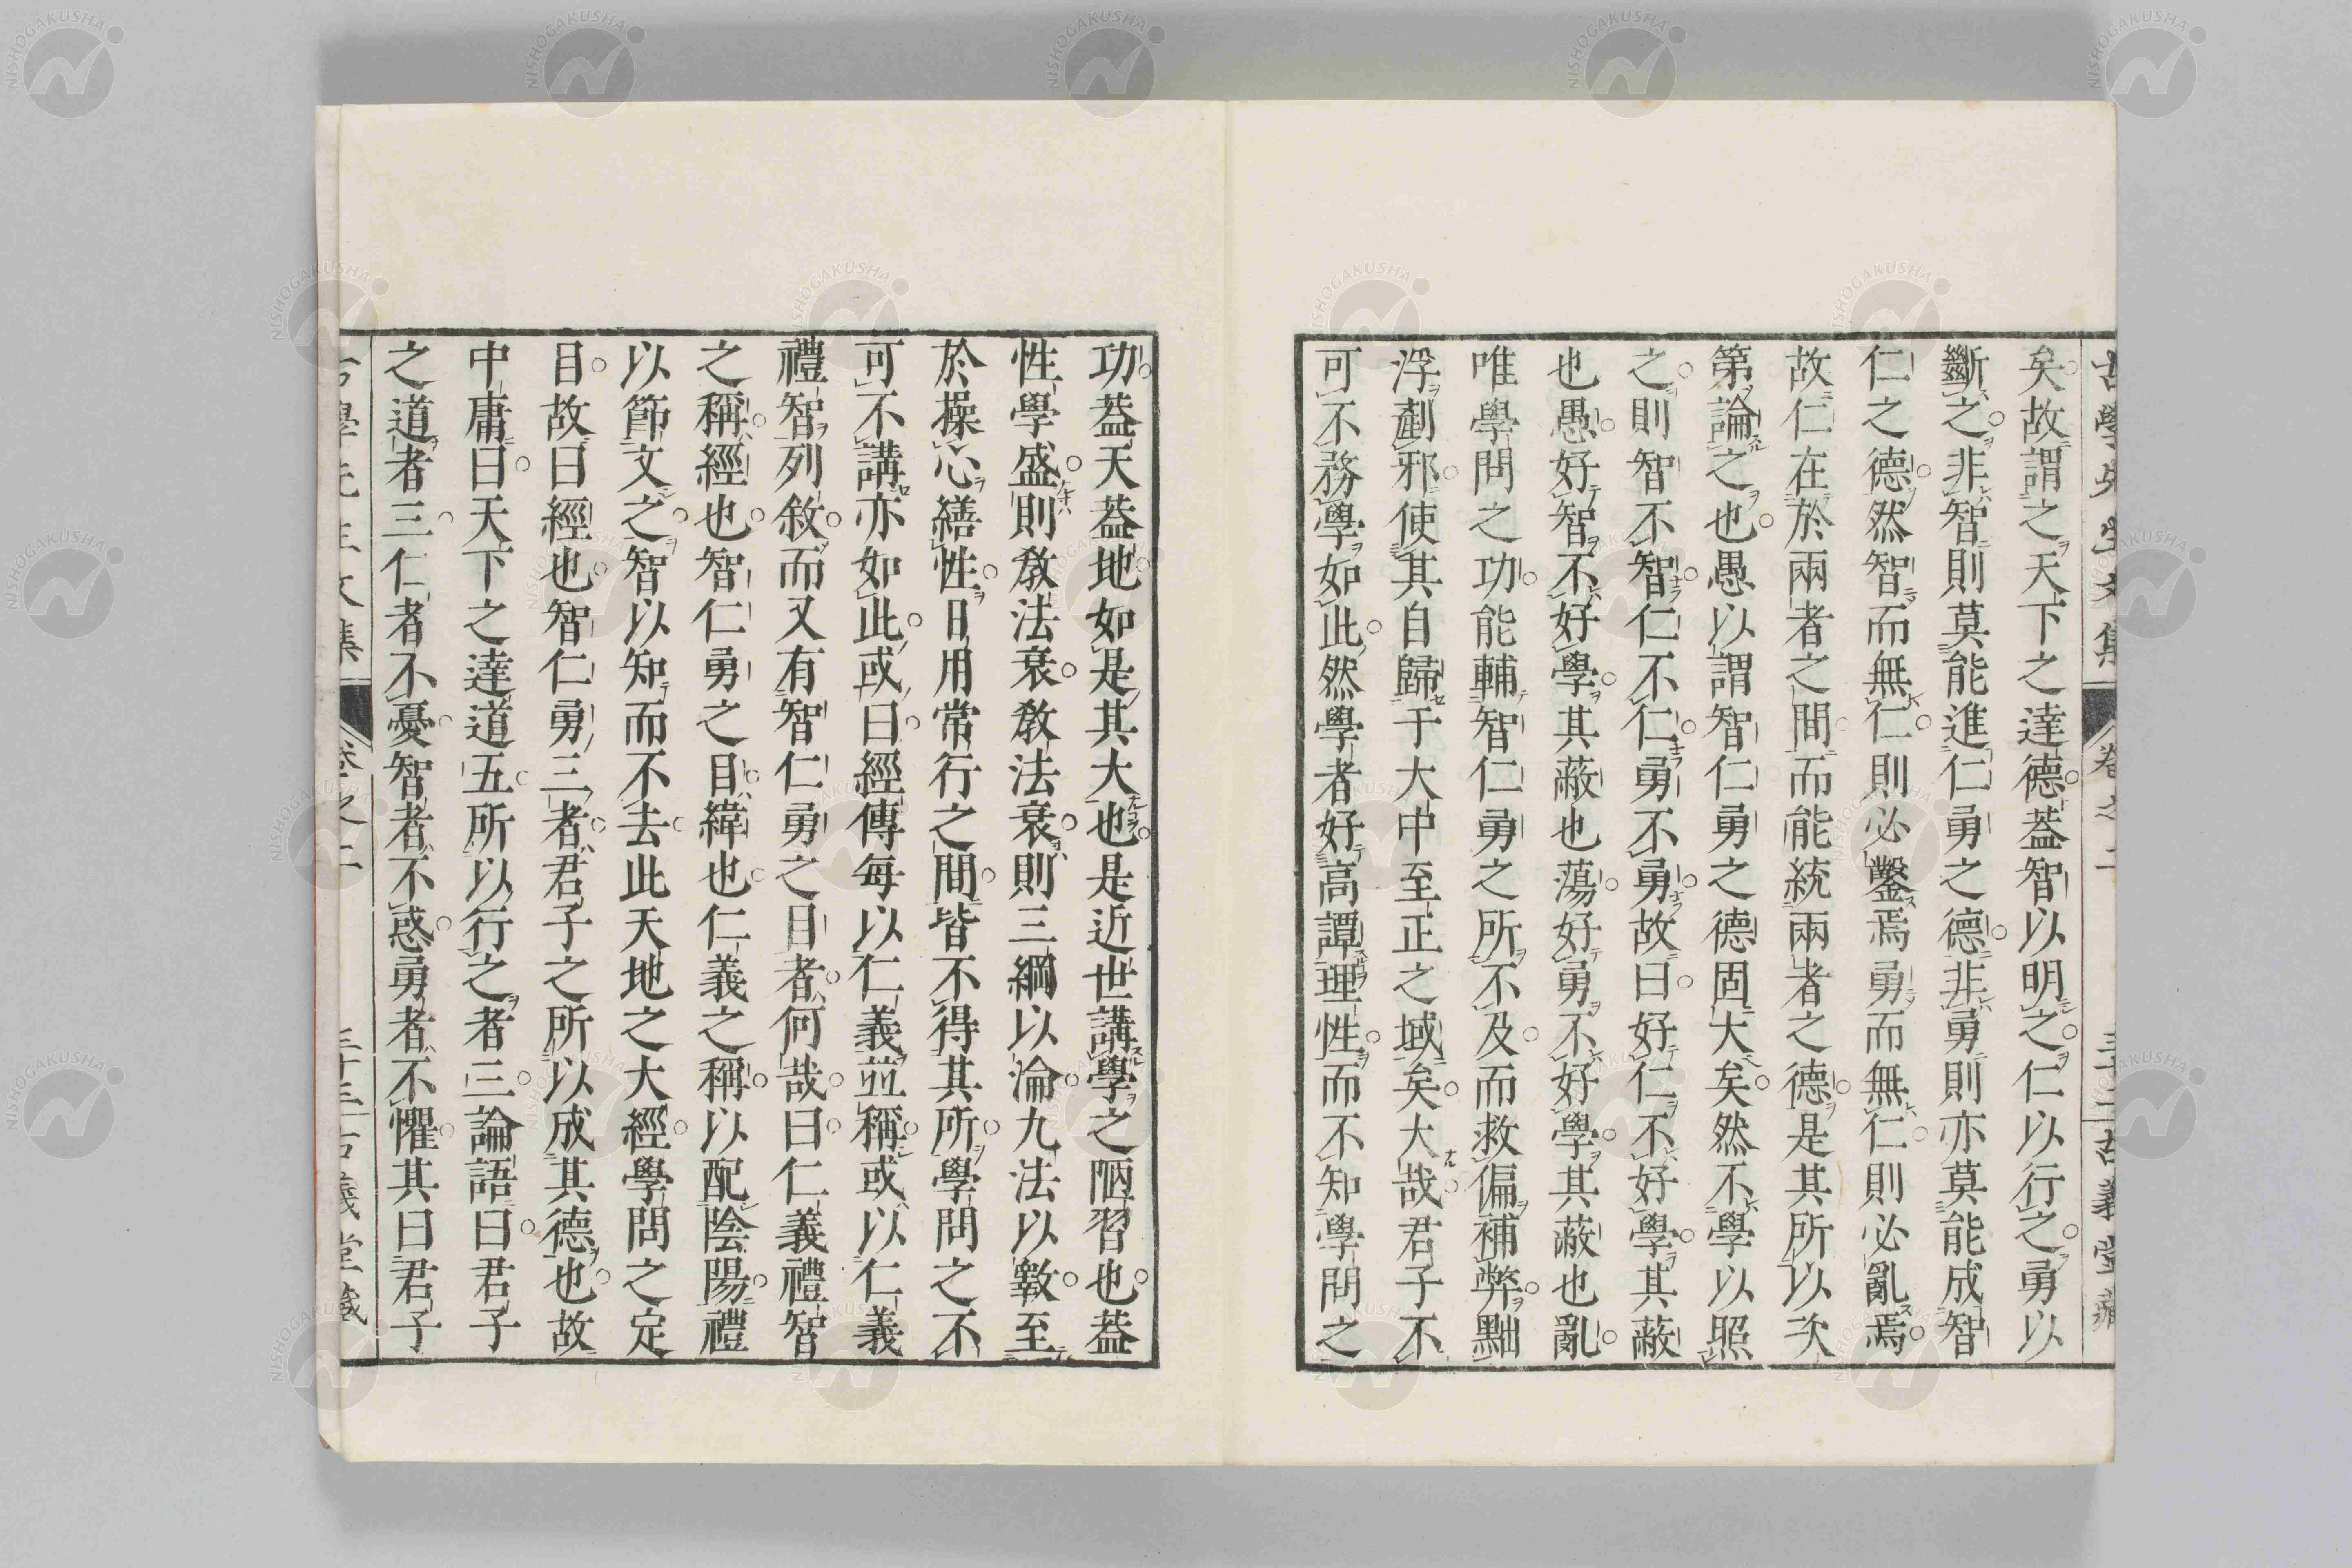 古學先生文集 卷之二 三十二 古義堂藏
矣故謂之天下之達德葢智以明之仁以行之勇以
斷之非智則莫能進仁勇之德非勇則亦莫能成智
仁之德然智而無仁則必鑿焉勇而無仁則必亂焉
故仁在於兩者之間而能統兩者之德是其所以次
第論之也愚以謂智仁勇之德固大矣然不學以照
之則智不智仁不仁勇不勇故曰好仁不好學其蔽
也愚好智不好學其蔽也蕩好勇不好學其蔽也亂
唯學問之功能輔智仁勇之所不及而救偏補弊黜
浮剷邪使其自歸于大中至正之域矣大哉君子不
可不務學如此然學者好高譚理性而不知學問之
功葢天葢地如是其大也是近世講學之陋習也葢
性學盛則敎法衰敎法衰則三綱以淪九法以斁至
於操心繕性日用常行之間皆不得其所學問之不
可不講亦如此或曰經傳每以仁義並稱或以仁義
禮智列敘而又有智仁勇之目者何哉曰仁義禮智
之稱經也智仁勇之目緯也仁義之稱以配陰陽禮
以節文之智以知而不去此天地之大經學問之定
目故曰經也智仁勇三者君子之所以成其德也故
中庸曰天下之達道五所以行之者三論語曰君子
之道者三仁者不憂智者不惑勇者不懼其曰君子
古學先生文集 卷之二 三十三 古義堂藏
NISHOGAKUSHA